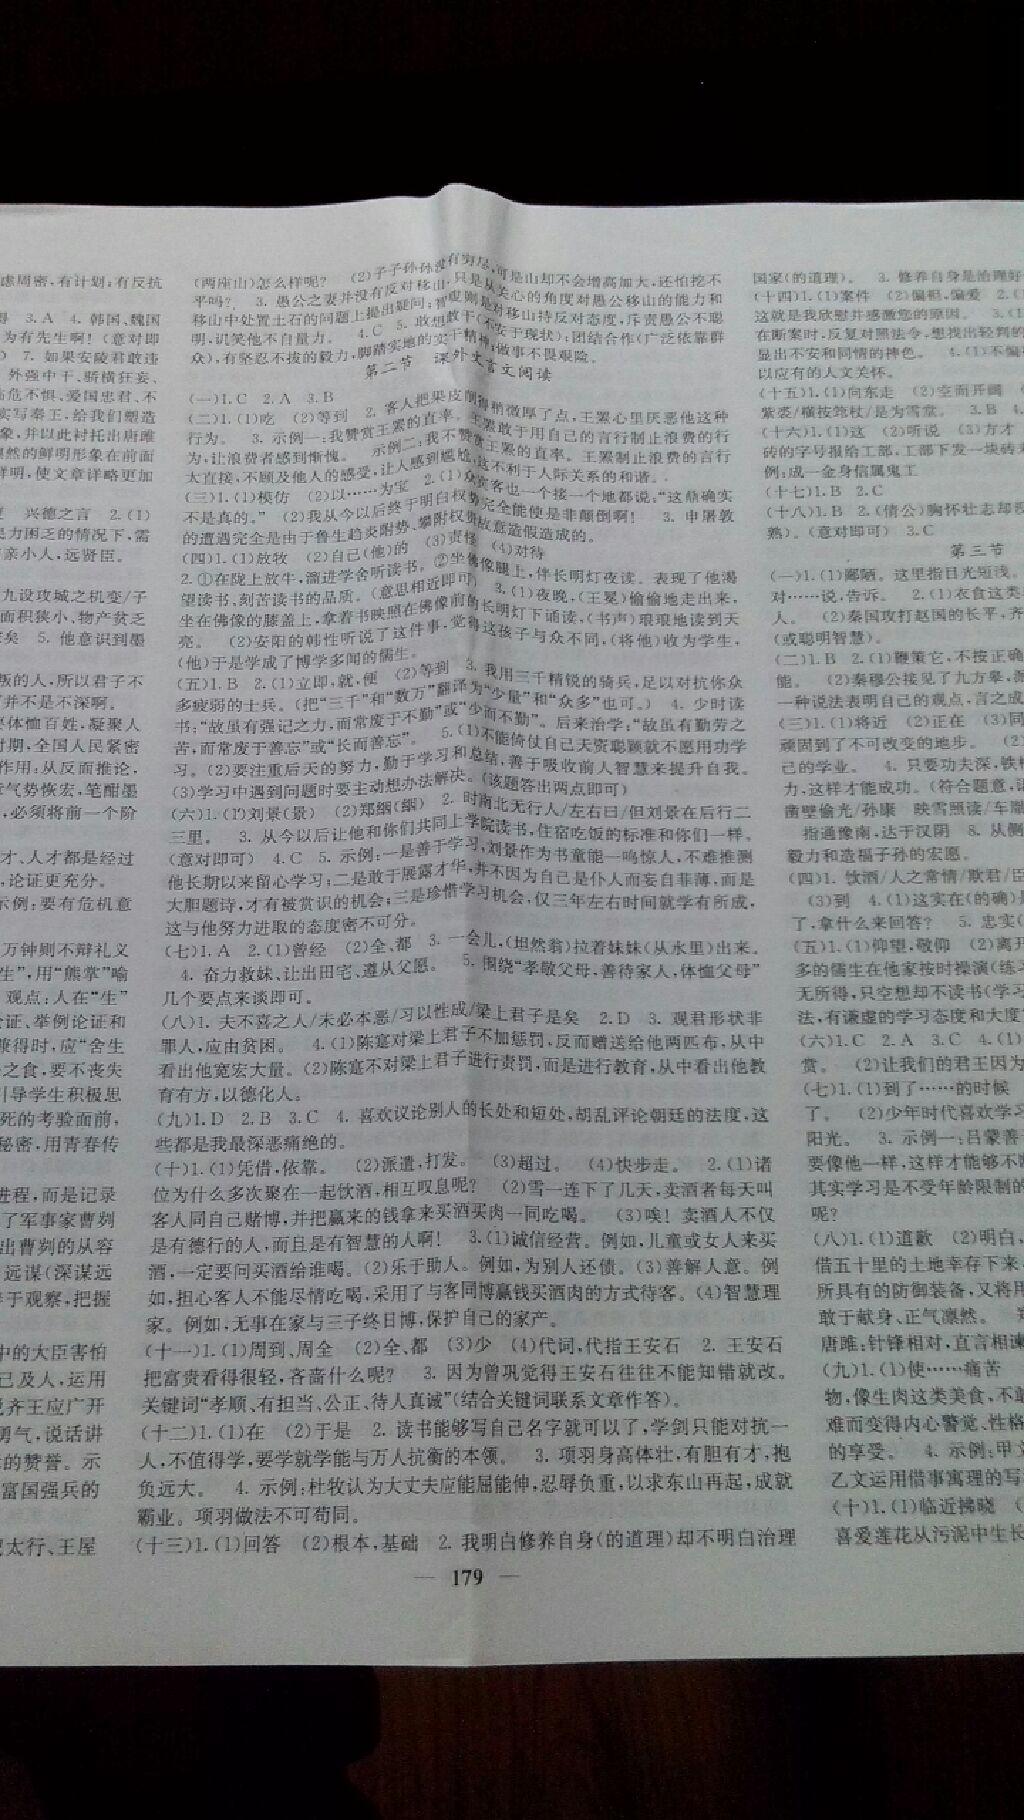 虑周密,有计划;有反抗
3.A 4. 韩国、魏国
为有先生啊!(意对即
7. 如果安陵君敢违
外强中干、骄横狂妄、
危不惧、爱国忠君、不
实写秦王,给我们塑造
象,并以此衬托出唐雎
然的鲜明形象在前面
鲜明,使文章详略更加
兴德之言 2.(1)
民力困乏的情况下,需
亲小人,远贤臣。
九设攻城之机变/子
面积狭小、物产贫乏
矣 5. 他意识到墨
叛的人,所以君子不
可并不是不深啊。
要体恤百姓,凝聚人
时期,全国人民紧密
作用:从反而推论,
气势恢宏,笔酣墨
,必须将前一个阶
才、人才都是经过
,论证更充分。
示例:要有危机意
万钟则不辩礼义
生”,用“熊掌”喻
观点:人在“生”
论证、举例论证和
兼得时,应“舍生
之食,要不丧失
引导学生积极思
死的考验面前,
秘密,用青春传
进程,而是记录
了军事家曹刿
出曹刿的从容
远谋(深谋远
善于观察,把握
中的大臣害怕
己及人,运用
齐王应广开
勇气,说话讲
的赞誉。示
富国强兵的
太行、王屋
(两座山)怎么样呢? (2)子子孙孙没有穷尽,可是山却不会增高加大,还怕挖不
平吗? 3. 愚公之妻并没有反对移山,只是从关心的角度对愚公移山的能力和
移山中处置土石的问题上提出疑问;智叟则是对移山持反对态度,斥责愚公不聪
明,讥笑他不自量力。 4.C 5. 敢想敢干(不安于现状);团结合作(广泛依靠群
众),有坚忍不拔的毅力,脚踏实地的实干精神;做事不畏艰险。
第二节 课外文言文阅读
(一)1.C 2.A 3.B
(二)1.(1)吃 (2)等到 2. 客人把果皮削得稍微厚了点,王罴心里厌恶他这种
行为。 3. 示例一:我赞赏王罴的直率。王罴敢于用自己的言行制止浪费的行
为,让浪费者感到惭愧。 示例二:我不赞赏王罴的直率。王罴制止浪费的言行
太直接,不顾及他人的感受,让人感到尴尬,这不利于人际关系的和谐。
(三)1.(1)模仿 (2)以……为宝 2.(1)众宾客也一个接一个地都说:“这鼎确实
不是真的。” (2)我从今以后终于明白权势完全能使是非颠倒啊! 3. 申屠敦
的遭遇完全是由于鲁生趋炎附势、攀附权贵故意造假造成的。
(四)1.(1)放牧 (2)自己(他)的 (3)责怪 (4)对待
2.①在陇上放牛,溜进学舍听读书。②坐佛像腿上,伴长明灯夜读。表现了他渴
望读书、刻苦读书的品质。(意思相近即可) 3.(1)夜晚,(王冕)偷偷地走出来,
坐在佛像的膝盖上,拿着书映照在佛像前的长明灯下诵读,(书声)琅琅地读到天
亮。 (2)安阳的韩性听说了这件事,觉得这孩子与众不同,(将他)收为学生,
(他)于是学成了博学多闻的儒生。
(五)1.B 2.(1)立即,就,便 (2)等到 3. 我用三千精锐的骑兵,足以对抗你众
多疲弱的士兵。(把“三千”和“数万”翻译为“少量”和“众多”也可。) 4. 少时读
书:“故虽有强记之力,而常废于不勤”或“少而不勤”。后来治学:“故虽有勤劳之
苦,而常废于善忘”或“长而善忘”。 5.(1)不能倚仗自己天资聪颖就不愿用功学
习。(2)要注重后天的努力,勤于学习和总结,善于吸收前人智慧来提升自我。
(3)学习中遇到问题时要主动想办法解决。(该题答出两点即可)
(六)1.(1)刘景(景) (2)郑纲(纲) 2. 时南北无行人/左右曰/但刘景在后行二
三里。 3. 从今以后让他和你们共同上学院读书,住宿吃饭的标准和你们一样。
(意对即可) 4.C 5. 示例:一是善于学习,刘景作为书童能一鸣惊人,不难推测
他长期以来留心学习;二是敢于展露才华,并不因为自己是仆人而妄自菲薄,而是
大胆题诗,才有被赏识的机会;三是珍惜学习机会,仅三年左右时间就学有所成,
这与他努力进取的态度密不可分。
(七)1.A 2.(1)曾经 (2)全、都 3. 一会儿,(坦然翁)拉着妹妹(从水里)出来。
4. 奋力救妹、让出田宅、遵从父愿。 5. 围绕“孝敬父母,善待家人,体恤父母”
几个要点来谈即可。
(八)1. 夫不喜之人/未必本恶/习以性成/梁上君子是矣 2.D 3. 观君形状非
罪人,应由贫困。 4.(1)陈寔对梁上君子不加惩罚,反而赠送给他两匹布,从中
看出他宽宏大量。(2)陈寔不对梁上君子进行责罚,而是进行教育,从中看出他教
育有方,以德化人。
(九)1.D 2.B 3.C 4. 喜欢议论别人的长处和短处,胡乱评论朝廷的法度,这
些都是我最深恶痛绝的。
(十)1.(1)凭借,依靠。 (2)派遣,打发。 (3)超过。 (4)快步走。 2.(1)诸
位为什么多次聚在一起饮酒,相互叹息呢? (2)雪一连下了几天,卖酒者每天叫
客人同自己赌博,并把赢来的钱拿来买酒买肉一同吃喝。 (3)唉! 卖酒人不仅
是有德行的人,而且是有智慧的人啊! 3.(1)诚信经营。例如,儿童或女人来买
酒,一定要问买酒给谁喝。(2)乐于助人。例如,为别人还债。(3)善解人意。例
如,担心客人不能尽情吃喝,采用了与客同博赢钱买酒肉的方式待客。(4)智慧理
家。例如,无事在家与三子终日博,保护自己的家产。
(十一)1.(1)周到、周全 (2)全、都 (3)少 (4)代词,代指王安石 2. 王安石
把富贵看得很轻,吝啬什么呢? 3. 因为曾巩觉得王安石往往不能知错就改。
关键词“孝顺、有担当、公正、待人真诚”(结合关键词联系文章作答)。
(十二)1.(1)在 (2)于是 2. 读书能够写自己名字就可以了,学剑只能对抗一
人,不值得学,要学就学能与万人抗衡的本领。 3. 项羽身高体壮,有胆有才,抱
负远大。 4. 示例:杜牧认为大丈夫应能屈能伸,忍辱负重,以求东山再起,成就
霸业。项羽做法不可苟同。
(十三)1.(1)回答 (2)根本,基础 2. 我明白修养自身(的道理)却不明白治理
国家(的道理)。 3. 修养自身是治理好
(十四)1.(1)案件 (2)偏袒,偏爱 2.(
这就是我欣慰并感激您的原因。 3.(1
在断案时,反复对照法令,想找出轻判的
显出不安和同情的神色。 4.(1)不偏
以应有的人文关怀。
(十五)1.(1)向东走 (2)空而开阔
紫裘/横按筇杖/是为雪堂。 3.B 4.
(十六)1.(1)这 (2)听说 (3)方才
砖的字号报给工部,工部下发一块砖
例:成一金身信属鬼工
(十七)1.B 2.C
(十八)1.B 2.(倩公)胸怀壮志却
熟)。(意对即可) 3.C
第三节
(一)1.(1)鄙陋。这里指目光短浅。
对……说,告诉。 2.(1)衣食这类
人。 (2)秦国攻打赵国的长平,齐
(或聪明智慧)。
(二)1.B 2.(1)鞭策它,不按正确
能。 (2)秦穆公接见了九方皋,派
一种说法表明自己的观点,言之成
(三)1.(1)将近 (2)正在 (3)同
顽固到了不可改变的地步。 (2)
己的学业。 4. 只要功夫深,铁杵
力,这样才能成功。(符合题意,
凿壁偷光/孙康 映雪照读/车胤
指通豫南,达于汉阴 8. 从侧
毅力和造福子孙的宏愿。
(四)1. 饮酒/人之常情/欺君/臣
(3)到 4.(1)这实在(的确)是
了,拿什么来回答? 5. 忠实(
(五)1.(1)仰望,敬仰 (2)离开
多的儒生在他家按时操演(练习
无所得,只空想却不读书(学习
法,有谦虚的学习态度和大度
(六)1.C 2.A 3.C 4.(1)
赏。 (2)让我们的君王因为
(七)1.(1)到了……的时候
了。 (2)少年时代喜欢学习
阳光。 3. 示例一:吕蒙善
要像他一样,这样才能够不断
其实学习是不受年龄限制的
呢?
(八)1.(1)道歉 (2)明白,
借五十里的土地幸存下来,
所具有的防御装备,又将用
敢于献身、正气凛然。
唐雎:针锋相对,直言相谏
(九)1.(1)使……痛苦
物,像生肉这类美食,不敢
难而变得内心警觉、性格
的享受。 4. 示例:甲文
乙文运用借事寓理的写
(十)1.(1)临近拂晓 (
喜爱莲花从污泥中生长
— 179 —